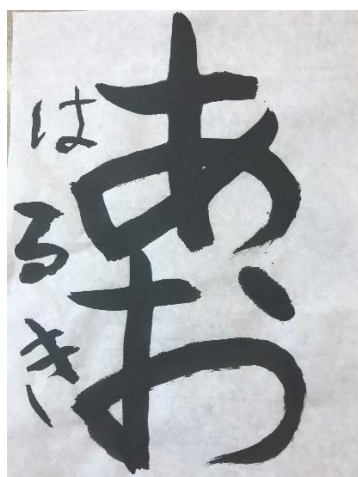 あお
はるき